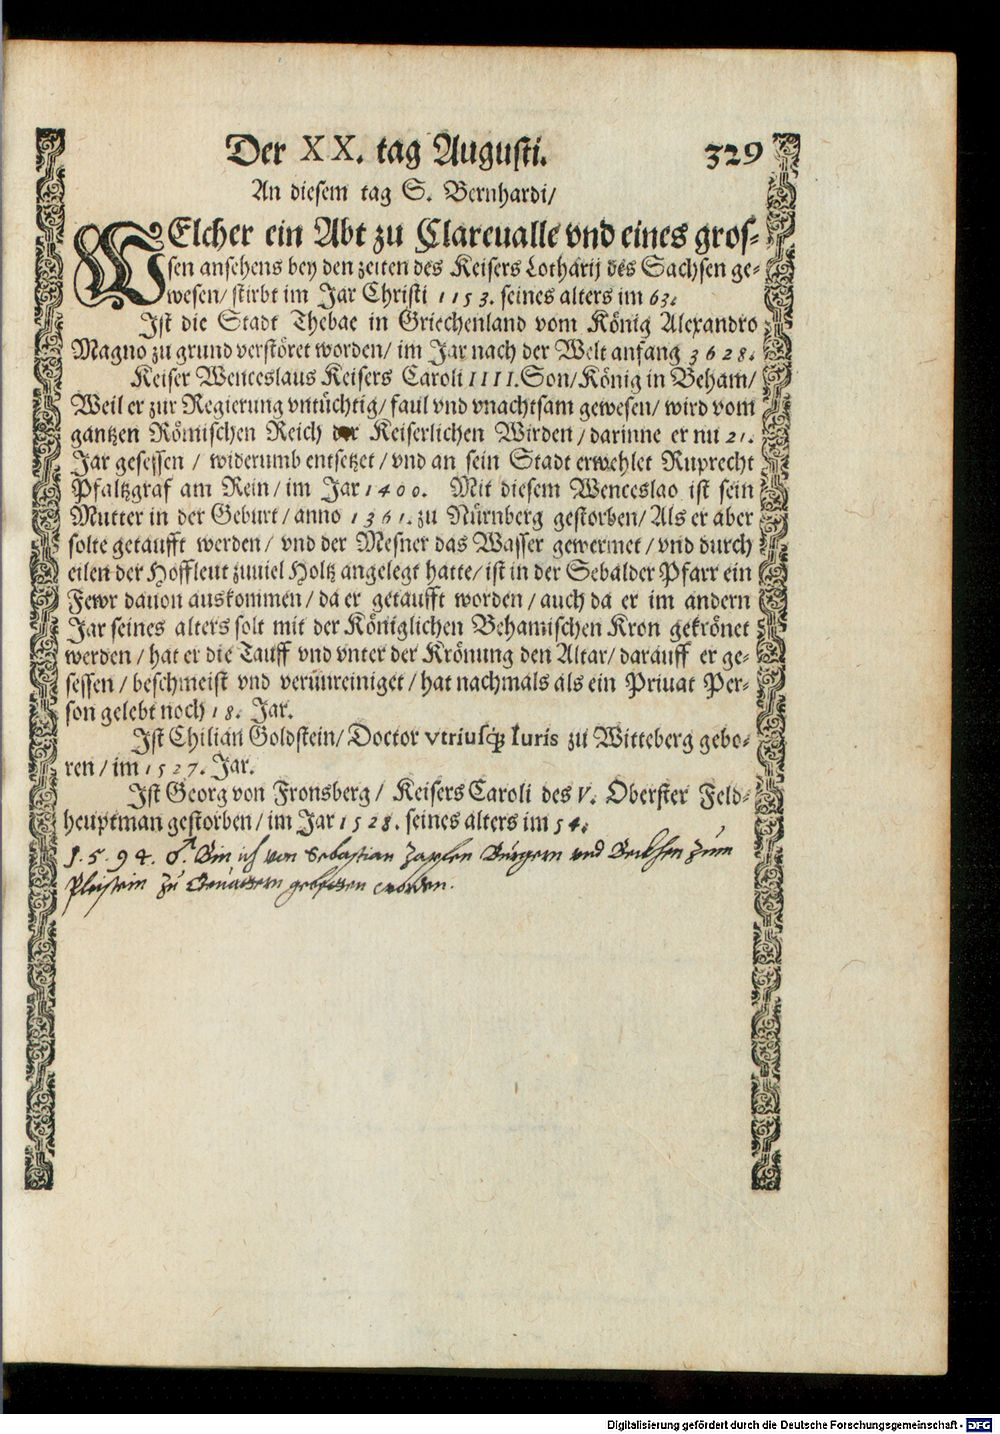 Der XX. tag Augusti. 329
An diesem tag S. Bernhardi/
WElcher ein Abt zu Clareualle vnd eines gros-
sen ansehens bey den zeiten des Keisers Lotharij des Sachsen ge-
wesen/ stirbt im Jar Christi 1153. seines alters im 63.
Ist die Stadt Thebae in Griechenland vom König Alexandro
Magno zu grund verstöret worden/ im Jar nach der Welt anfang 3628.
Keiser Wenceslaus Keisers Caroli IIII. Son/ König in Beham/
Weil er zur Regierung vntüchtig/ faul vnd vnachtsam gewesen/ wird vom
gantzen Römischen Reich der Keiserlichen Wirden/ darinne er nu 21.
Jar gesessen/ widerumb entsetzet/ vnd an sein Stadt erwehlet Ruprecht
Pfaltzgraf am Rein/ im Jar 1400. Mit diesem Wenceslao ist sein
Mutter in der Geburt/ anno 1361. zu Nürnberg gestorben/ Als er aber
solte getaufft werden/ vnd der Mesner das Wasser gewermet/ vnd durch
eilen der Hoffleut zuuiel Holtz angelegt hatte/ ist in der Sebalder Pfarr ein
Fewr dauon auskommen/ da er getaufft worden/ auch da er im andern
Jar seines alters solt mit der Königlichen Behamischen Kron gekrönet
werden/ hat er die Tauff vnd vnter der Krönung den Altar/ darauff er ge-
sessen/ beschmeist vnd verünreiniget/ hat nachmals als ein Priuat Per-
son gelebt noch 18. Jar.
Ist Chilian Goldstein/ Doctor vtriusq; Iuris zu Witteberg gebo-
ren/ im 1527. Jar.
Ist Georg von Fronsberg/ Keisers Caroli des V. Oberster Feld-
heuptman gestorben/ im Jar 1528. seines alters im 54.
1.5.94. ♂. Bin ich von Sebastian Zapfen Burgern vnd Becken zum
Pleistein zu Geuattern gebetten worden.
Digitalisierung gefördert durch die Deutsche Forschungsgemeinschaft - DFG